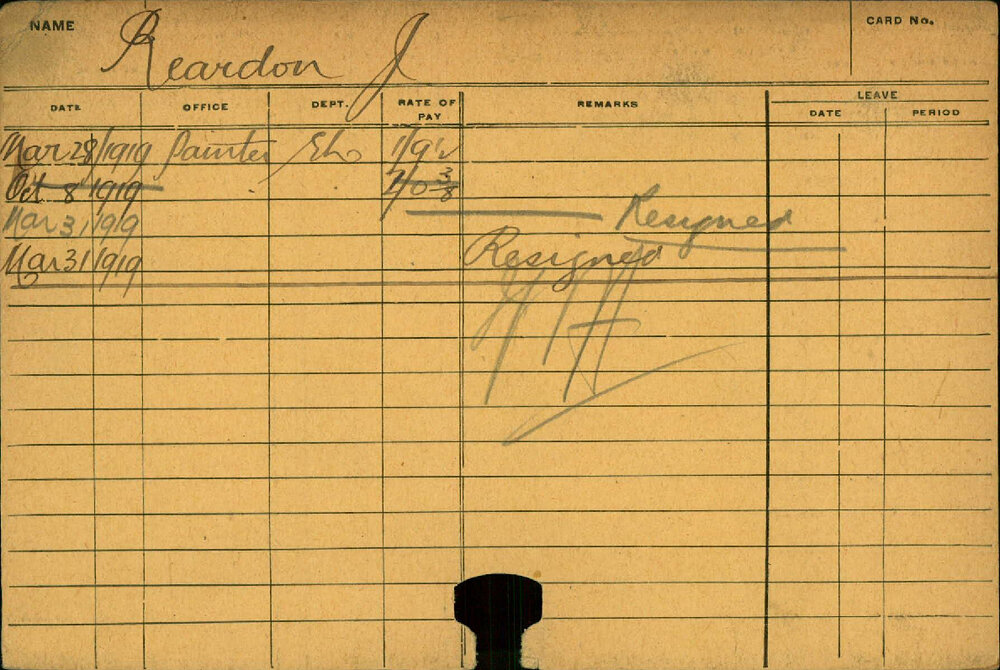 NAME Reardon J CARD No.
DATE OFFICE DEPT. RATE OF PAY REMARKS LEAVE
DATE PERIOD
Mar 28/1919 Painter 1/9½
Oct 8 1919 2/0 3/8
Mar 31 1919 Resigned
Mar 31/1919 Resigned